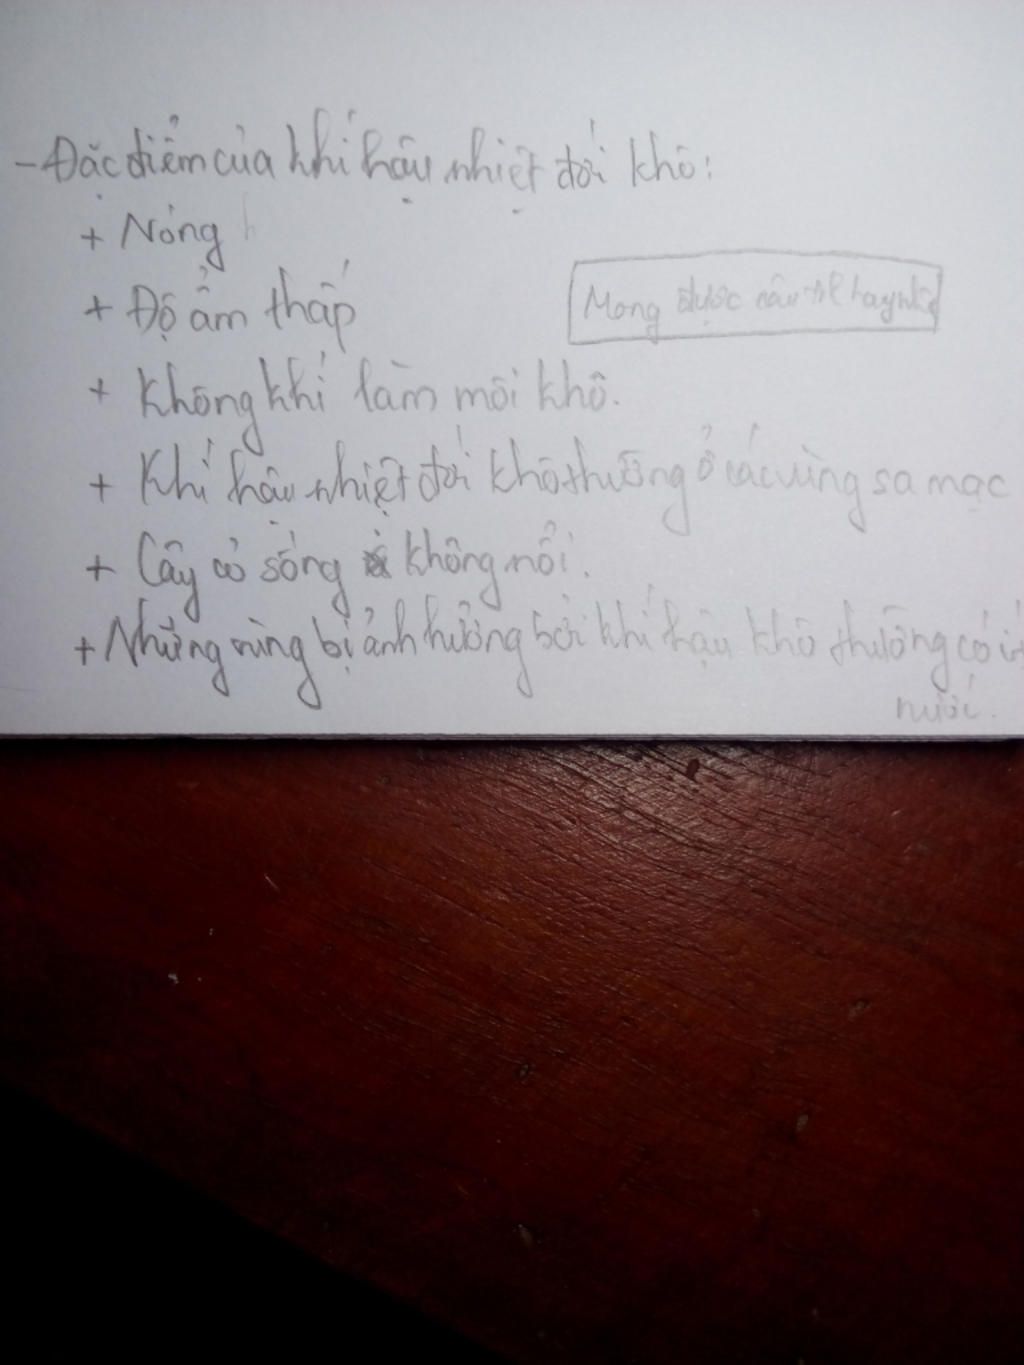 - Đặc điểm của khí hậu nhiệt đới khô:
+ Nóng
+ Độ ẩm thấp
Mong được câu tl hay nhất
+ Không khí làm môi khô.
+ Khí hậu nhiệt đới khô thường ở các vùng sa mạc
+ Cây cỏ sống không nổi.
+ Những vùng bị ảnh hưởng bởi khí hậu khô thường có ít
nước.